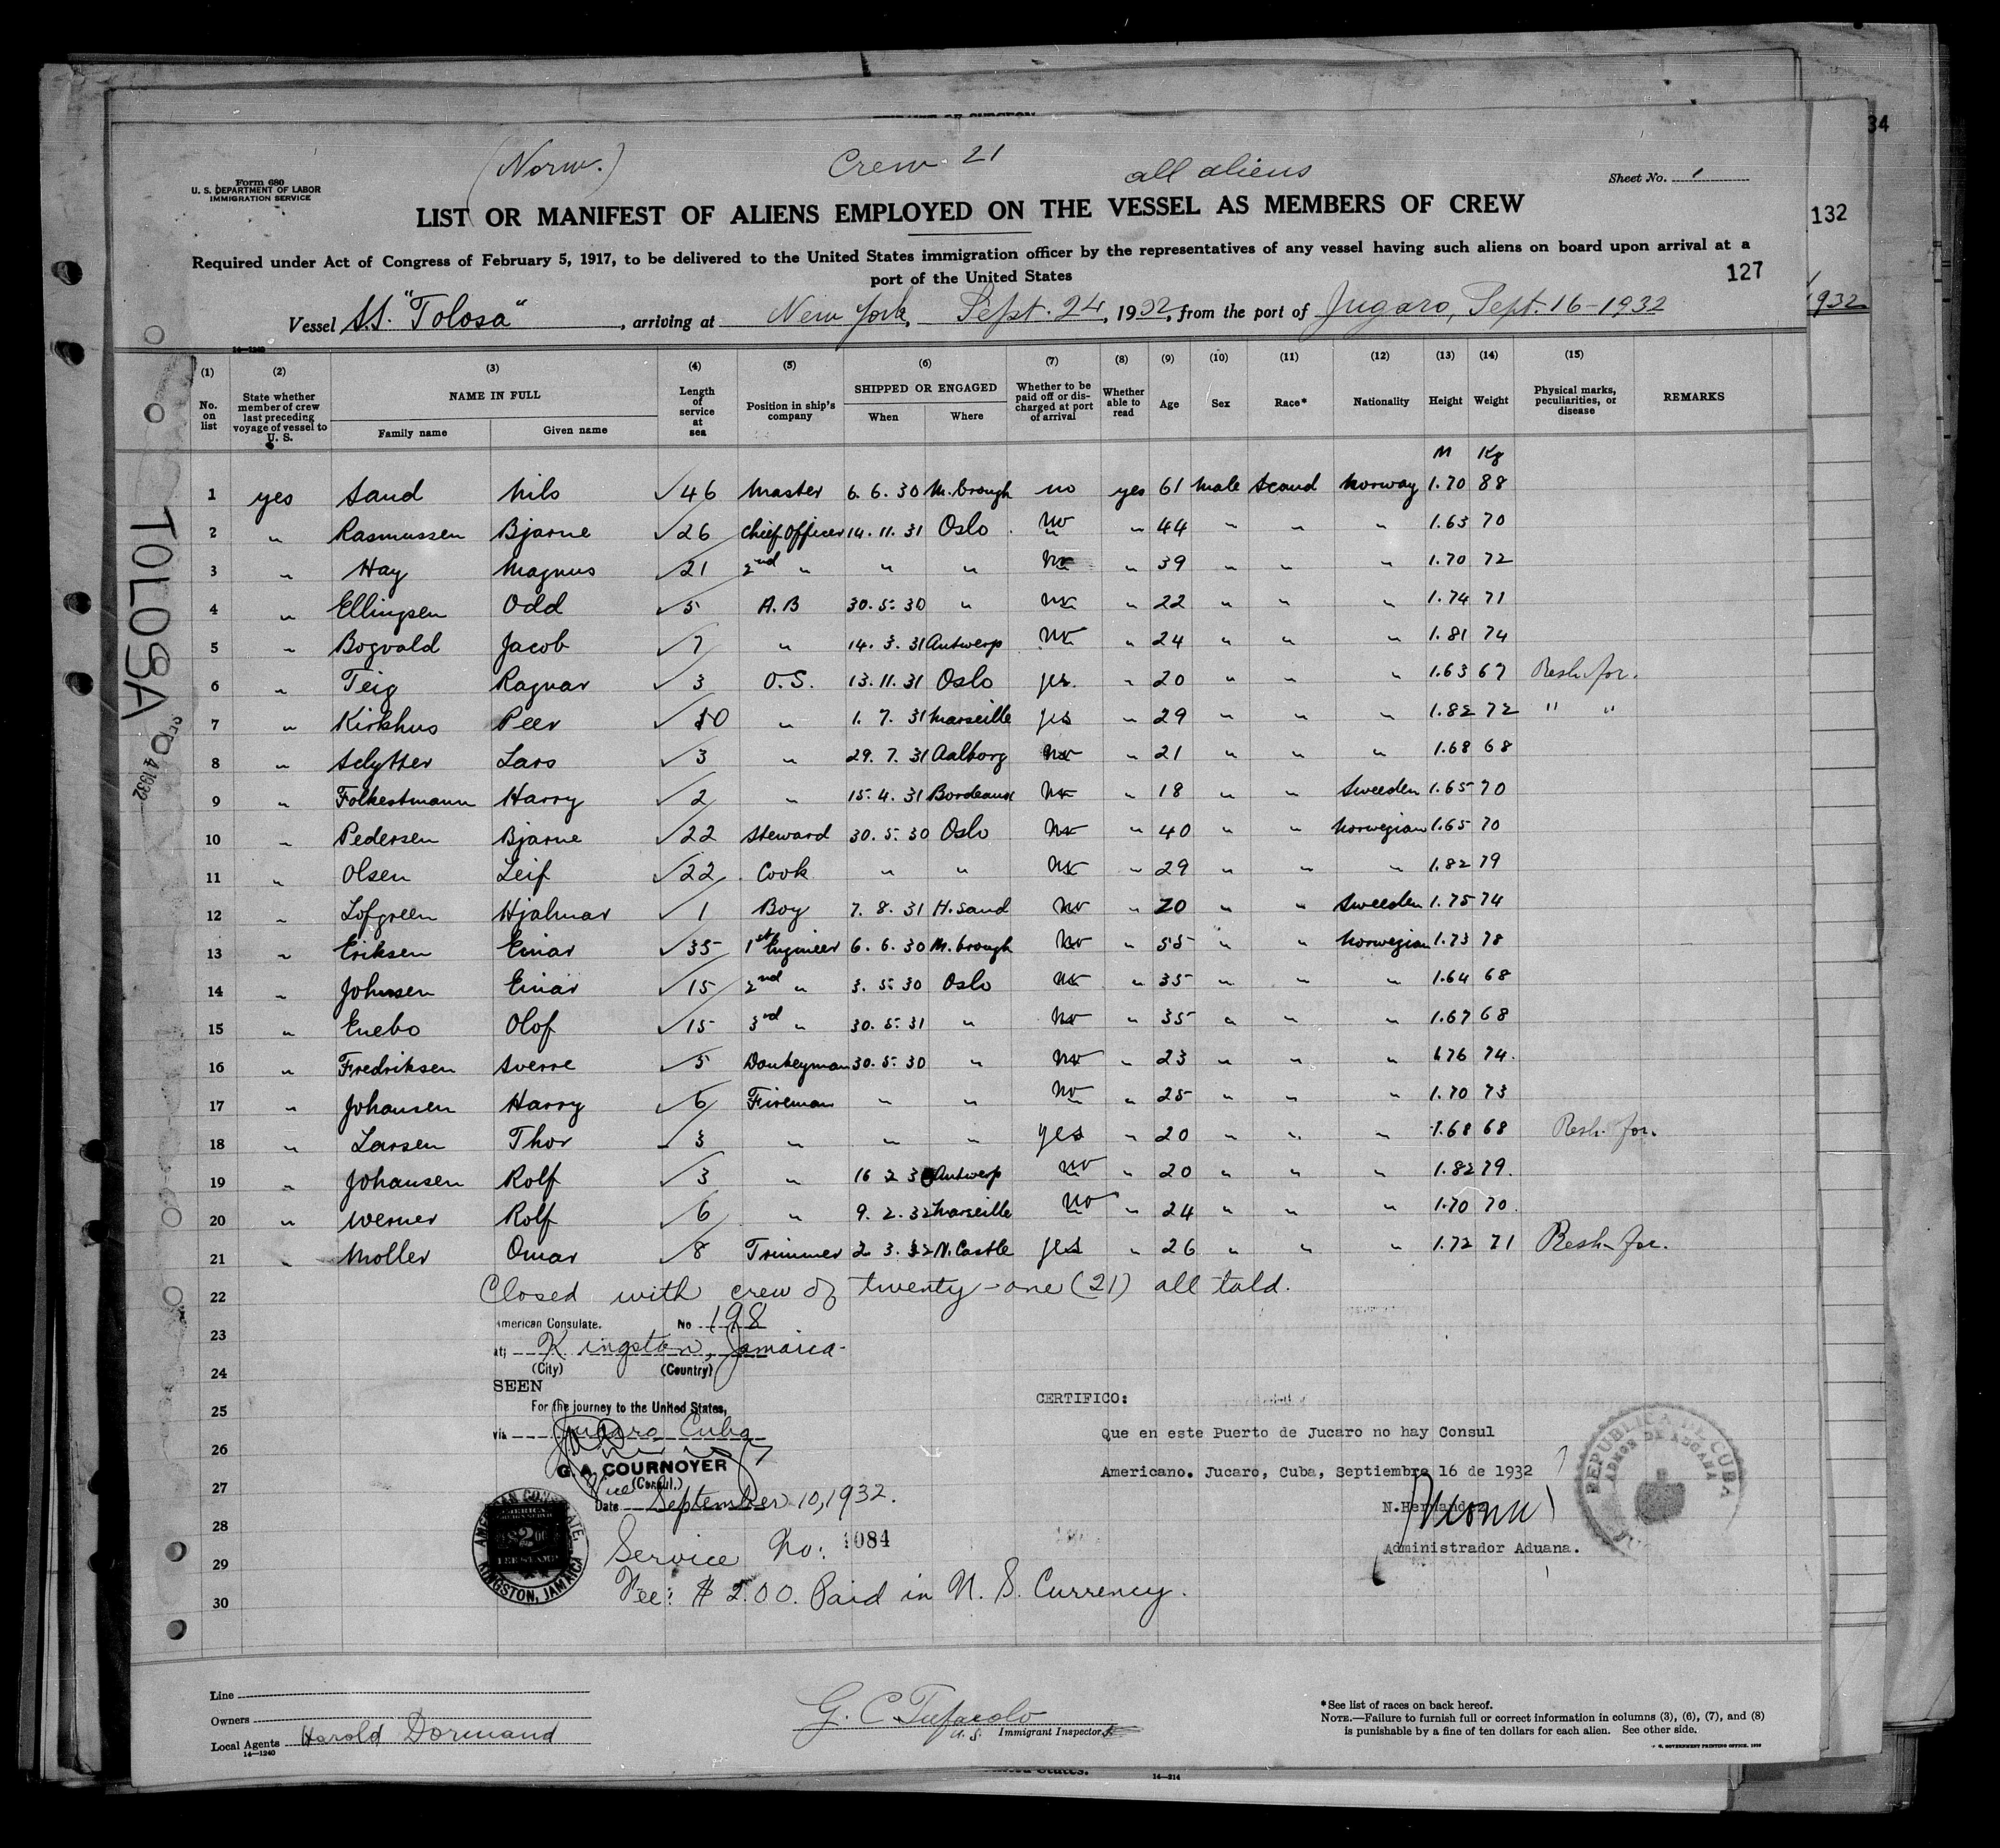 34
132
1932
(Norw.) Crew 21 all aliens
Form 680
U. S. DEPARTMENT OF LABOR
IMMIGRATION SERVICE
Sheet No. 1
LIST OR MANIFEST OF ALIENS EMPLOYED ON THE VESSEL AS MEMBERS OF CREW
Required under Act of Congress of February 5, 1917, to be delivered to the United States immigration officer by the representatives of any vessel having such aliens on board upon arrival at a
port of the United States
127
Vessel S.S. "Tolosa", arriving at New York, Sept. 24, 1932, from the port of Jugaro, Sept. 16-1932
14—1240
(1) (2) (3) (4) (5) (6) (7) (8) (9) (10) (11) (12) (13) (14) (15)
No. on list State whether member of crew last preceding voyage of vessel to U. S. NAME IN FULL Length of service at sea Position in ship's company SHIPPED OR ENGAGED Whether to be paid off or discharged at port of arrival Whether able to read Age Sex Race* Nationality Height Weight Physical marks, peculiarities, or disease REMARKS
Family name Given name When Where
M Kg
1 yes Sand Nils √46 Master 6. 6. 30 M.brough no yes 61 Male Scand Norway 1.70 88
2 " Rasmussen Bjarne √26 Chief Officer 14. 11. 31 Oslo No " 44 " " " 1.63 70
3 " Hay Magnus √21 2nd " " " No " 39 " " " 1.70 72
4 " Ellingsen Odd √5 A.B 30. 5. 30 " No " 22 " " " 1.74 71
5 " Bogvald Jacob √7 " 14. 3. 31 Antwerp No " 24 " " " 1.81 74
6 " Teig Ragnar √3 O.S. 13. 11. 31 Oslo yes " 20 " " " 1.63 67 Resh. for.
7 " Kirkhus Peer √10 " 1. 7. 31 Marseille yes " 29 " " " 1.82 72 " "
8 " Schytter Lars √3 " 29. 7. 31 Aalborg No " 21 " " " 1.68 68
9 " Folkestmann Harry √2 " 15. 4. 31 Bordeaux No " 18 " " Sweeden 1.65 70
10 " Pedersen Bjarne √22 Steward 30. 5. 30 Oslo No " 40 " " Norwegian 1.65 70
11 " Olsen Leif √22 Cook " " No " 29 " " " 1.82 79
12 " Lofgreen Hjalmar √1 Boy 7. 8. 31 H.sand No " 20 " " Sweeden 1.75 74
13 " Eriksen Einar √35 1st Engineer 6. 6. 30 M.brough No " 55 " " Norwegian 1.73 78
14 " Johnsen Einar √15 2nd " 3. 5. 30 Oslo No " 35 " " " 1.64 68
15 " Enebo Olof √15 3rd " 30. 5. 31 " No " 35 " " " 1.67 68
16 " Fredriksen Sverre √5 Donkeyman 30. 5. 30 " No " 23 " " " 1.76 74.
17 " Johansen Harry √6 Fireman " " No " 25 " " " 1.70 73
18 " Larsen Thor √3 " " " yes " 20 " " " 1.68 68 Resh. for.
19 " Johansen Rolf √3 " 16 2 30 Antwerp No " 20 " " " 1.82 79.
20 " Werner Rolf √6 " 9. 2. 32 Marseille No " 24 " " " 1.70 70.
21 " Moller Omar √8 Trimmer 2 3. 32 N.Castle yes " 26 " " " 1.72 71 Resh. for.
22 Closed with crew of twenty-one (21) all told.
American Consulate. No 198
23
at; Kingston, Jamaica
24 (City) (Country)
SEEN
25 For the journey to the United States,
via Jucaro Cuba
26
G. A. COURNOYER
27 Vice (Consul.)
Date September 10, 1932.
28
Service No: 1084
29
Fee: $ 2.00. Paid in U. S. Currency.
30
AMERICAN CONSULATE, KINGSTON, JAMAICA
AMERICAN FOREIGN SERVICE
$2.00
FEE STAMP
CERTIFICO:
Que en este Puerto de Jucaro no hay Consul
Americano. Jucaro, Cuba, Septiembre 16 de 1932
N.Hernandez
Administrador Aduana.
REPUBLICA DE CUBA
ADMOR DE ADUANA
TOLOSA
OCT 4 1932
Line
Owners
Local Agents Harold Dormand
14—1240
G. C. Tufarolo
U. S. Immigrant Inspector.
*See list of races on back hereof.
NOTE.—Failure to furnish full or correct information in columns (3), (6), (7), and (8)
is punishable by a fine of ten dollars for each alien. See other side.
14—214